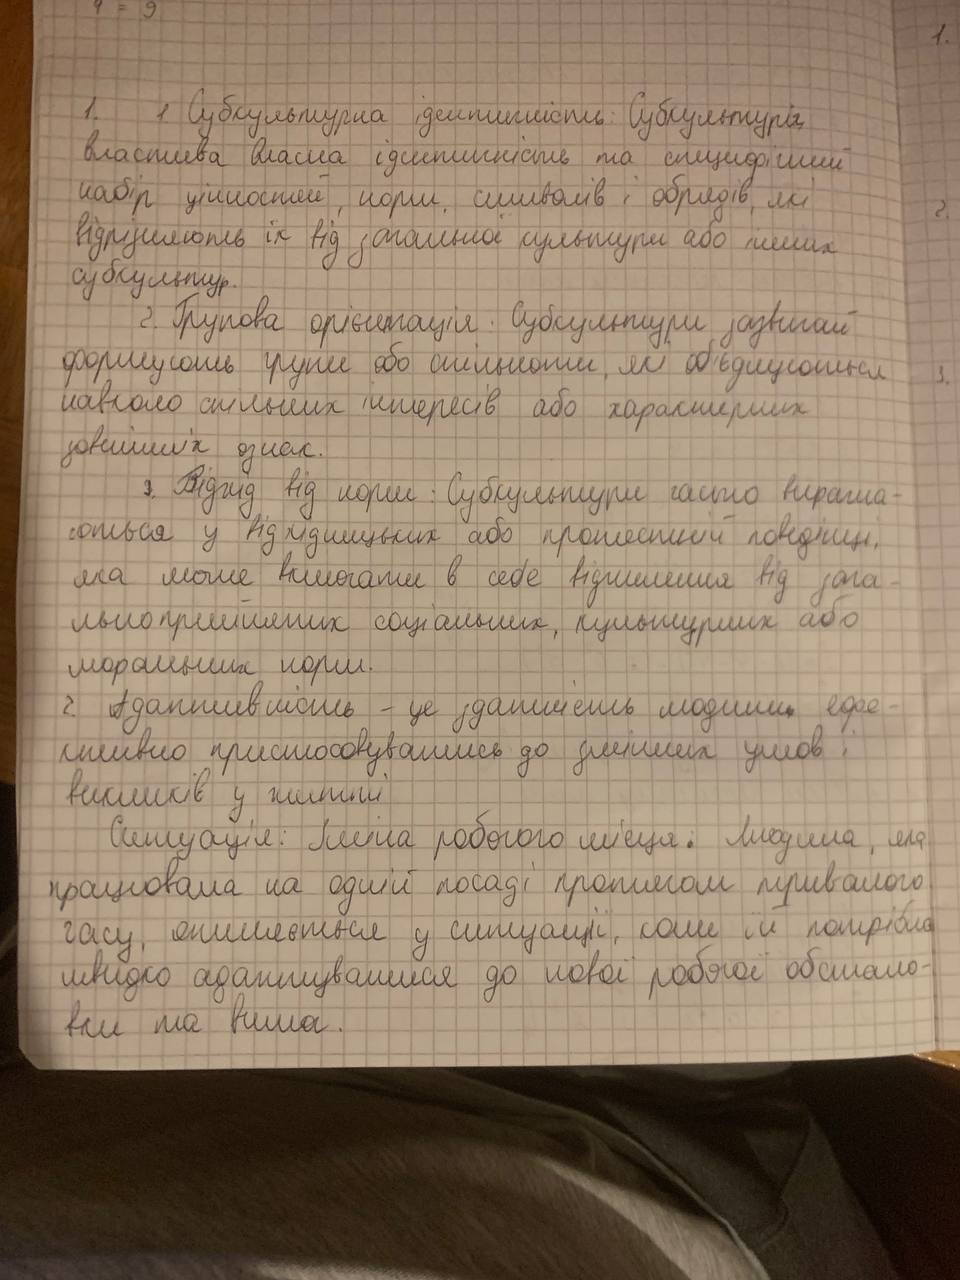 4 = 9
1.
1. 1 Субкультурна ідентичність: Субкультурі
властива власна ідентичність та специфічний
набір цінностей, норм, символів і обрядів, які
2.
відрізняють їх від загальної культури або інших
субкультур.
2. Групова орієнтація: Субкультури зазвичай
формують групи або спільноти, які об'єднуються
3.
навколо спільних інтересів або характерних
зовнішніх ознак.
3. Відхід від норм: Субкультури часто виража-
ються у відхідницьких або протестній поведінці,
яка може вимогати в себе відхилення від зага-
льноприйнятих соціальних, культурних або
моральних норм.
2. Адаптивність – це здатність людини ефе-
ктивно пристосовуватись до змінних умов і
викликів у житті
Ситуація: Зміна робочого місця: Людина, яка
працювала на одній посаді протягом тривалого
часу, опиняється у ситуації, коли їй потрібно
швидко адаптуватися до нової робочої обстано-
вки та вимог.